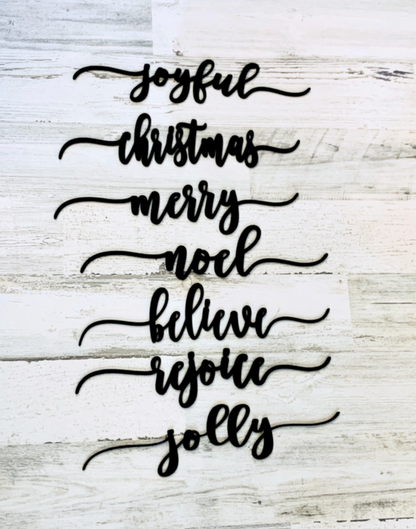 joyful
christmas
merry
noel
believe
rejoice
jolly